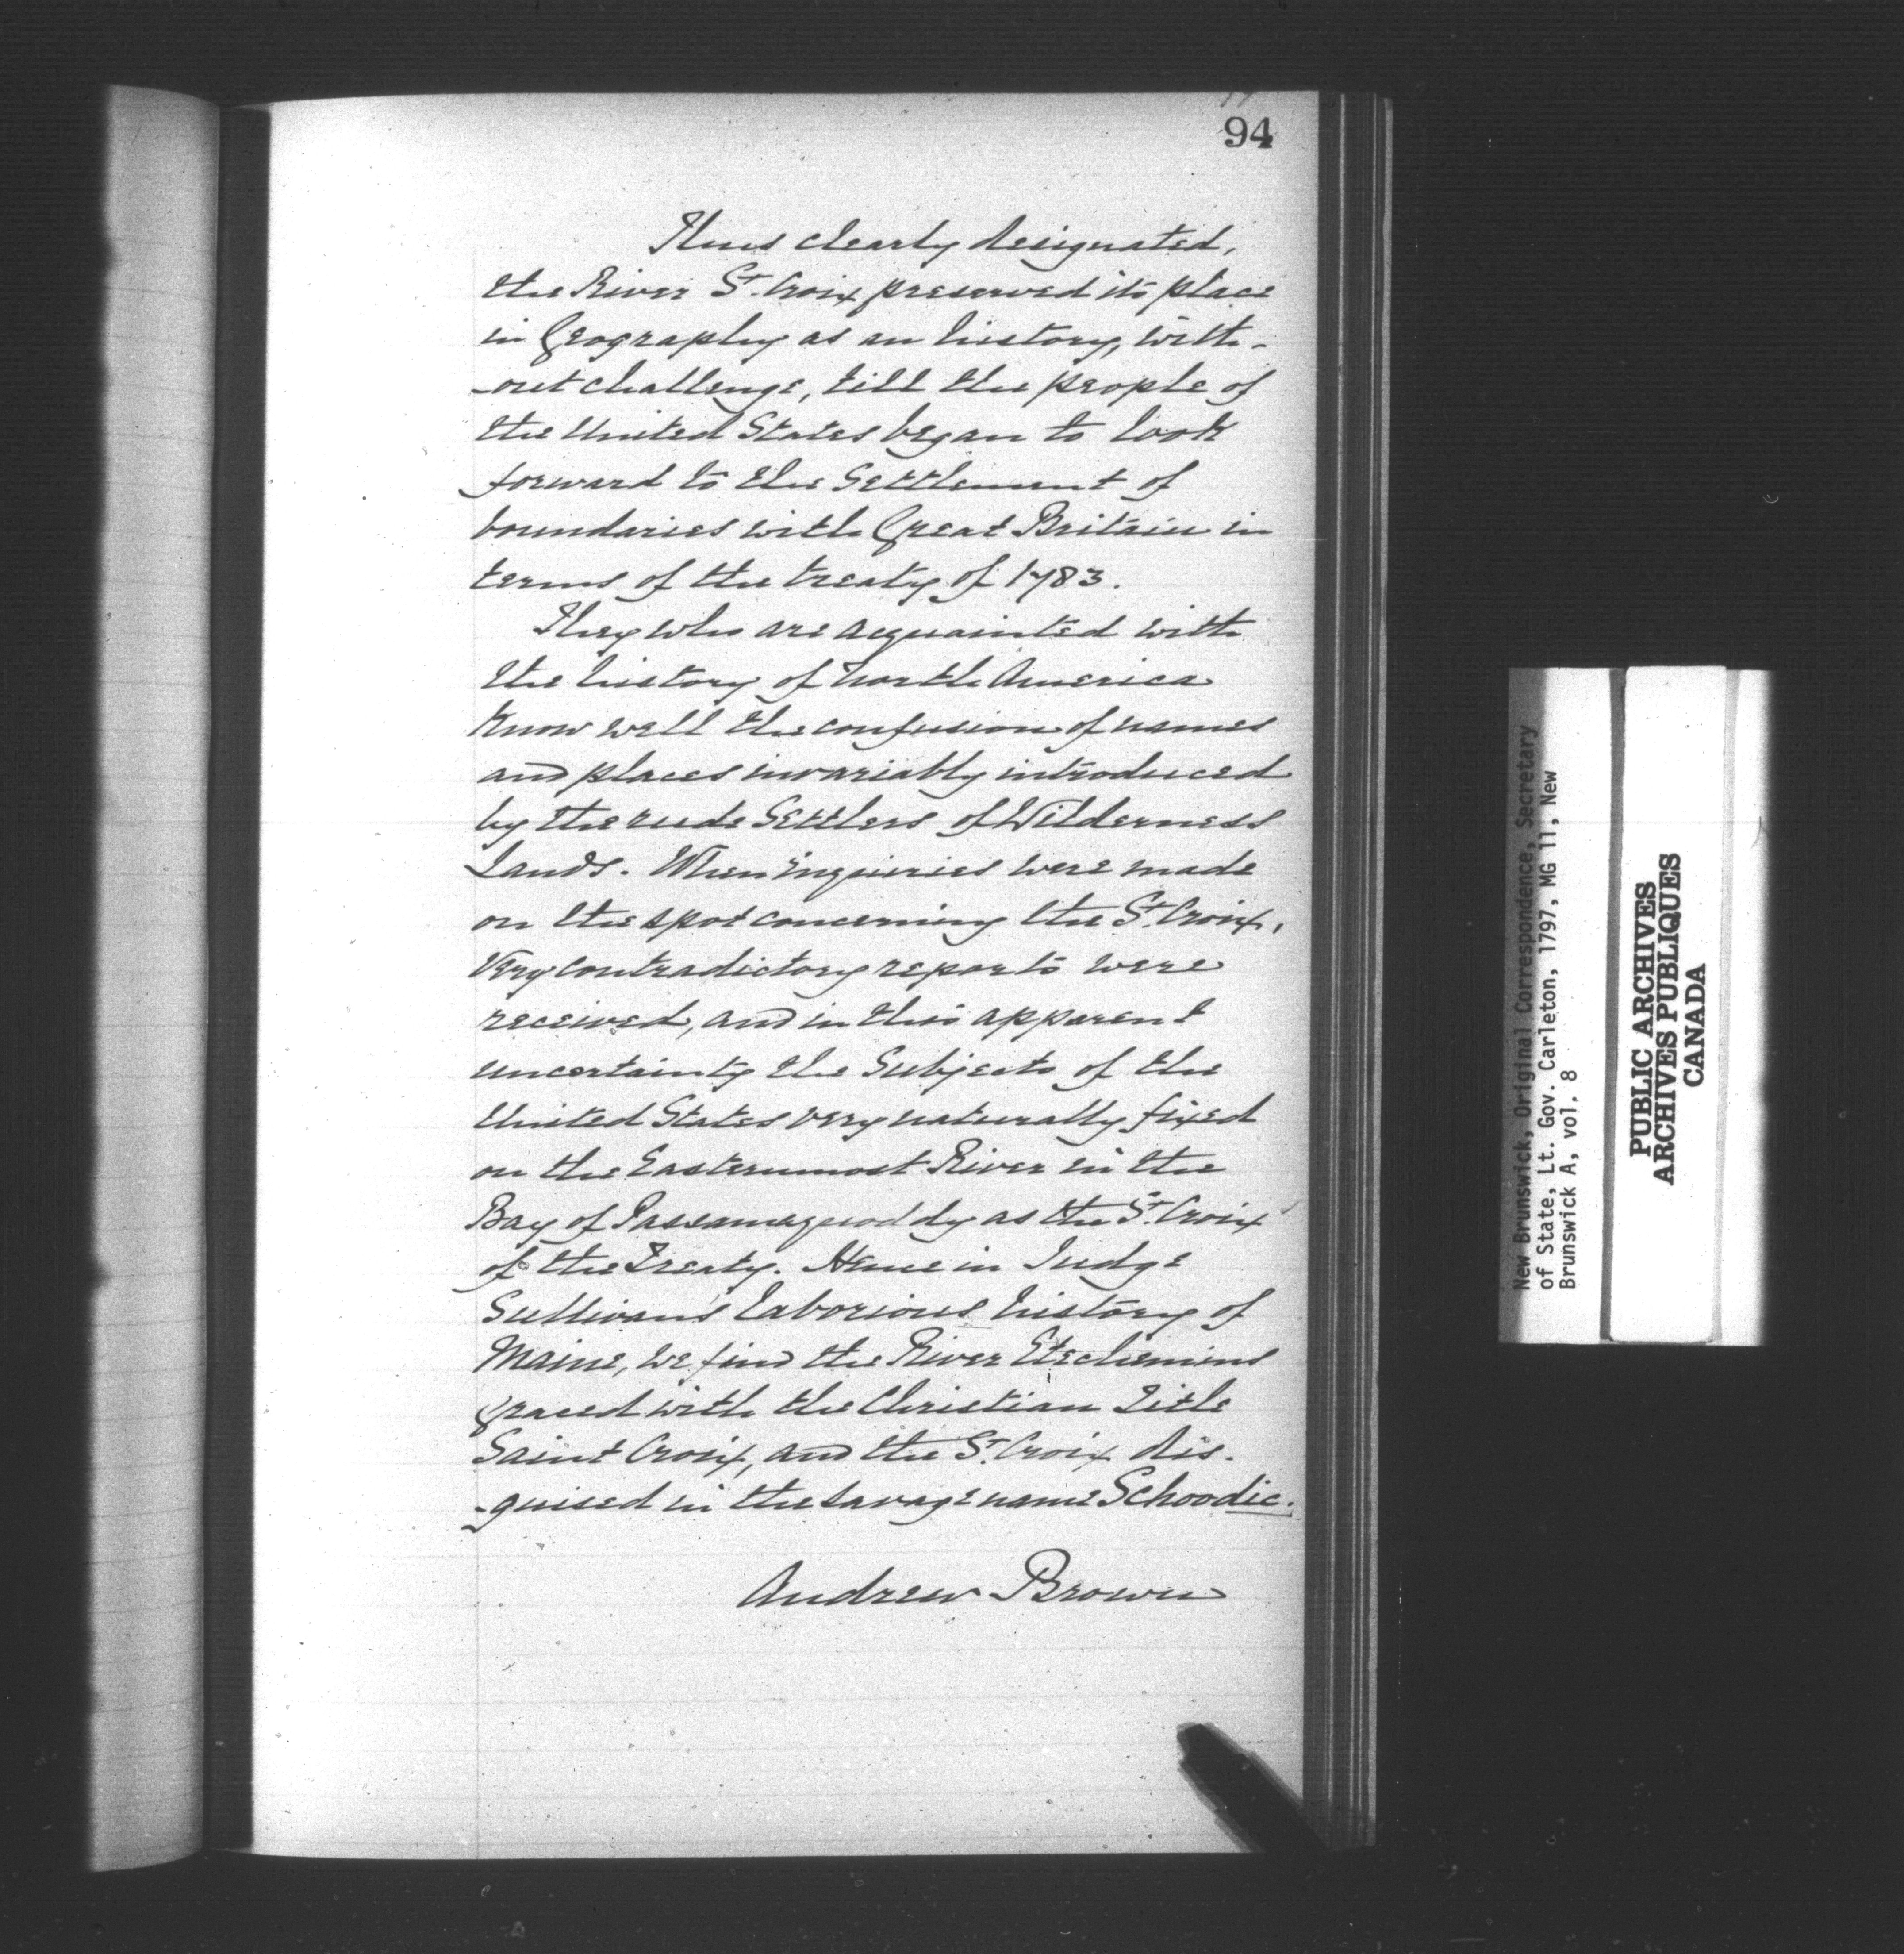 94
Thus clearly designated,
the River St. Croix preserved its place
in Geography as an history, with-
-out challenge, till the people of
the United States began to look
forward to the Settlement of
boundaries with Great Britain in
terms of the treaty of 1783.
They who are acquainted with
the history of North America
know well the confusion of names
and places invariably introduced
by the rude Settlers of Wilderness
Lands. When inquiries were made
on the spot concerning the St. Croix,
very contradictory reports were
received, and in this apparent
uncertainty the Subjects of the
United States very naturally fixed
on the Easternmost River in the
Bay of Passamaquoddy as the St. Croix
of the Treaty. Hence in Judge
Sullivan's laborious history of
Maine, we find the River Etechemins
graced with the Christian Title
Saint Croix, and the St. Croix dis-
-guised in the savage name Schoodic.
Andrew Brown
New Brunswick, Original Correspondence, Secretary
of State, Lt. Gov. Carleton, 1797, MG 11, New
Brunswick A, vol. 8
PUBLIC ARCHIVES
ARCHIVES PUBLIQUES
CANADA